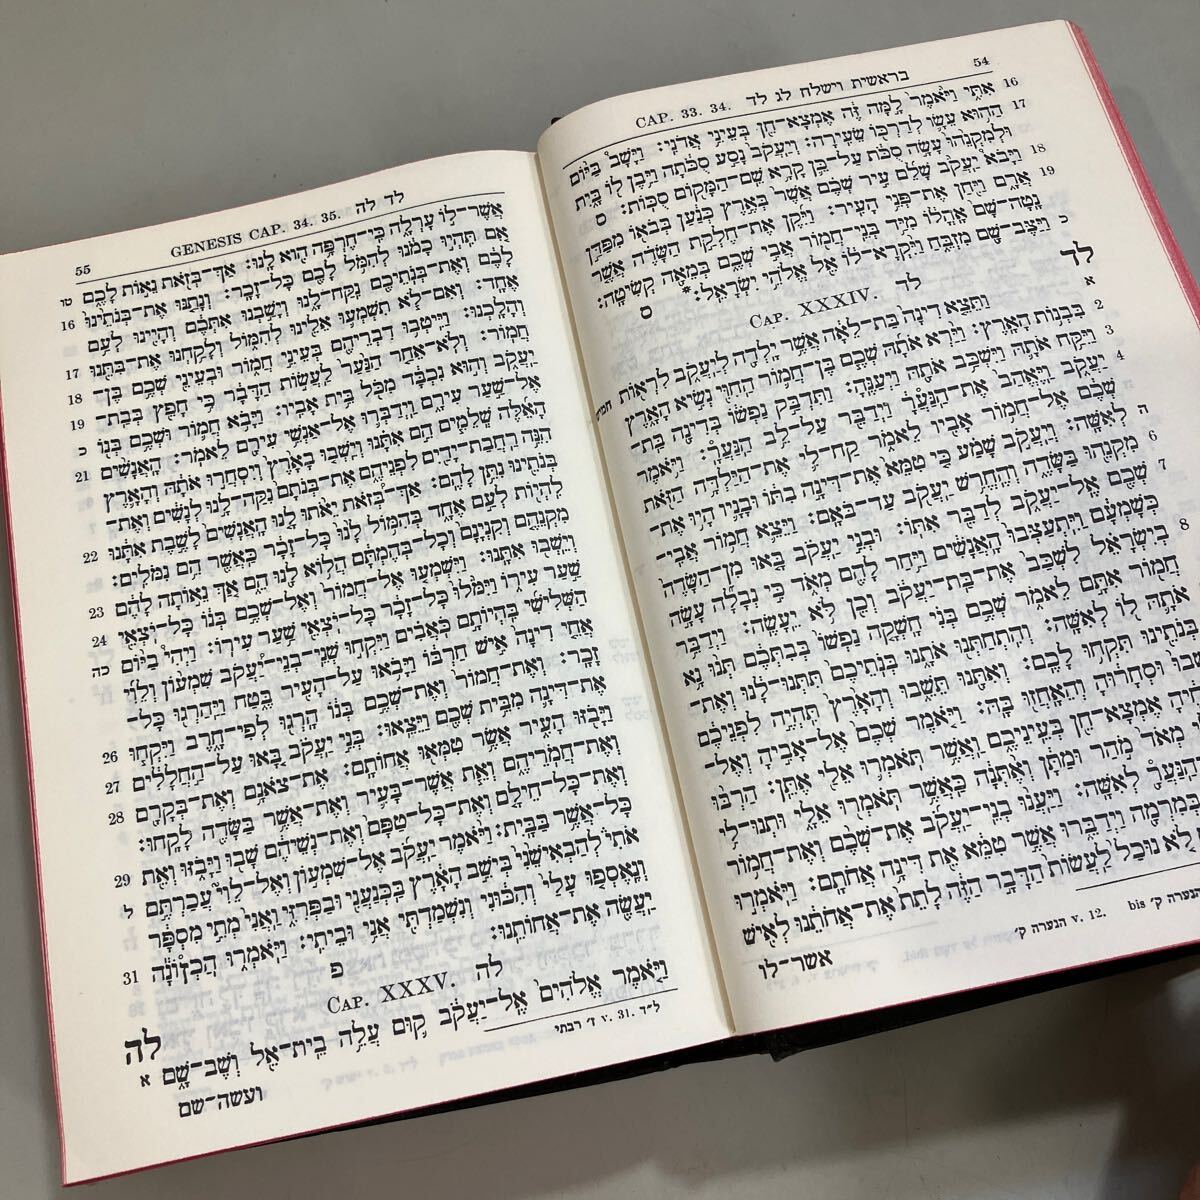 54
בראשית וישלח לג לד
CAP. 33. 34.
16
אִתִּי וַיֹּאמֶר לָמָּה זֶּה אֶמְצָא־חֵן בְּעֵינֵי אֲדֹנִי׃ וַיָּשָׁב בַּיּוֹם
17
הַהוּא עֵשָׂו לְדַרְכּוֹ שֵׂעִירָה׃ וְיַעֲקֹב נָסַע סֻכֹּתָה וַיִּבֶן לוֹ בָּיִת
וּלְמִקְנֵהוּ עָשָׂה סֻכֹּת עַל־כֵּן קָרָא שֵׁם־הַמָּקוֹם סֻכּוֹת׃ ס
18
וַיָּבֹא יַעֲקֹב שָׁלֵם עִיר שְׁכֶם אֲשֶׁר בְּאֶרֶץ כְּנַעַן בְּבֹאוֹ מִפַּדַּן
19
אֲרָם וַיִּחַן אֶת־פְּנֵי הָעִיר׃ וַיִּקֶן אֶת־חֶלְקַת הַשָּׂדֶה אֲשֶׁר
נָטָה־שָׁם אָהֳלוֹ מִיַּד בְּנֵי־חֲמוֹר אֲבִי שְׁכֶם בְּמֵאָה קְשִׂיטָה׃
כ
וַיַּצֶּב־שָׁם מִזְבֵּחַ וַיִּקְרָא־לוֹ אֵל אֱלֹהֵי יִשְׂרָאֵל׃* ס
CAP. XXXIV. לד
לד
א
וַתֵּצֵא דִינָה בַּת־לֵאָה אֲשֶׁר יָלְדָה לְיַעֲקֹב לִרְאוֹת
2
בִּבְנוֹת הָאָרֶץ׃ וַיַּרְא אֹתָהּ שְׁכֶם בֶּן־חֲמוֹר הַחִוִּי נְשִׂיא הָאָרֶץ
3
וַיִּקַּח אֹתָהּ וַיִּשְׁכַּב אֹתָהּ וַיְעַנֶּהָ׃ וַתִּדְבַּק נַפְשׁוֹ בְּדִינָה בַּת־
4
יַעֲקֹב וַיֶּאֱהַב אֶת־הַנַּעֲרָ וַיְדַבֵּר עַל־לֵב הַנַּעֲרָ׃ וַיֹּאמֶר
שְׁכֶם אֶל־חֲמוֹר אָבִיו לֵאמֹר קַח־לִי אֶת־הַיַּלְדָּה הַזֹּאת
ה
לְאִשָּׁה׃ וְיַעֲקֹב שָׁמַע כִּי טִמֵּא אֶת־דִּינָה בִתּוֹ וּבָנָיו הָיוּ אֶת־
6
מִקְנֵהוּ בַּשָּׂדֶה וְהֶחֱרִשׁ יַעֲקֹב עַד־בֹּאָם׃ וַיֵּצֵא חֲמוֹר אֲבִי־
7
שְׁכֶם אֶל־יַעֲקֹב לְדַבֵּר אִתּוֹ׃ וּבְנֵי יַעֲקֹב בָּאוּ מִן־הַשָּׂדֶה
כְּשָׁמְעָם וַיִּתְעַצְּבוּ הָאֲנָשִׁים וַיִּחַר לָהֶם מְאֹד כִּי־נְבָלָה עָשָׂה
8
בְיִשְׂרָאֵל לִשְׁכַּב אֶת־בַּת־יַעֲקֹב וְכֵן לֹא יֵעָשֶׂה׃ וַיְדַבֵּר
חֲמוֹר אִתָּם לֵאמֹר שְׁכֶם בְּנִי חָשְׁקָה נַפְשׁוֹ בְּבִתְּכֶם תְּנוּ נָא
אֹתָהּ לוֹ לְאִשָּׁה׃ וְהִתְחַתְּנוּ אֹתָנוּ בְּנֹתֵיכֶם תִּתְּנוּ־לָנוּ וְאֶת־
בְּנֹתֵינוּ תִּקְחוּ לָכֶם׃ וְאִתָּנוּ תֵּשֵׁבוּ וְהָאָרֶץ תִּהְיֶה לִפְנֵיכֶם
וּסְחָרוּהָ וְהֵאָחֲזוּ בָּהּ׃ וַיֹּאמֶר שְׁכֶם אֶל־אָבִיהָ וְאֶל־
אֶמְצָא־חֵן בְּעֵינֵיכֶם וַאֲשֶׁר תֹּאמְרוּ אֵלַי אֶתֵּן׃ הַרְבּוּ
מְאֹד מֹהַר וּמַתָּן וְאֶתְּנָה כַּאֲשֶׁר תֹּאמְרוּ אֵלָי וּתְנוּ־לִי
הַנַּעֲרָ לְאִשָּׁה׃ וַיַּעֲנוּ בְנֵי־יַעֲקֹב אֶת־שְׁכֶם וְאֶת־חֲמוֹר
בְּמִרְמָה וַיְדַבֵּרוּ אֲשֶׁר טִמֵּא אֵת דִּינָה אֲחֹתָם׃ וַיֹּאמְרוּ
לֹא נוּכַל לַעֲשׂוֹת הַדָּבָר הַזֶּה לָתֵת אֶת־אֲחֹתֵנוּ לְאִישׁ
הנערה ק׳ v. 12. bis הנערה ק׳
אשר־לו
55
GENESIS CAP. 34. 35. לד לה
אֲשֶׁר־לוֹ עָרְלָה כִּי־חֶרְפָּה הִוא לָנוּ׃ אַךְ־בְּזֹאת נֵאוֹת לָכֶם
טו
אִם תִּהְיוּ כָמֹנוּ לְהִמֹּל לָכֶם כָּל־זָכָר׃ וְנָתַנּוּ אֶת־בְּנֹתֵינוּ
16
לָכֶם וְאֶת־בְּנֹתֵיכֶם נִקַּח־לָנוּ וְיָשַׁבְנוּ אִתְּכֶם וְהָיִינוּ לְעַם
17
אֶחָד׃ וְאִם־לֹא תִשְׁמְעוּ אֵלֵינוּ לְהִמּוֹל וְלָקַחְנוּ אֶת־בִּתֵּנוּ
18
וְהָלָכְנוּ׃ וַיִּיטְבוּ דִבְרֵיהֶם בְּעֵינֵי חֲמוֹר וּבְעֵינֵי שְׁכֶם בֶּן־
19
חֲמוֹר׃ וְלֹא־אֵחַר הַנַּעַר לַעֲשׂוֹת הַדָּבָר כִּי חָפֵץ בְּבַת־
כ
יַעֲקֹב וְהוּא נִכְבָּד מִכֹּל בֵּית אָבִיו׃ וַיָּבֹא חֲמוֹר וּשְׁכֶם בְּנוֹ
21
אֶל־שַׁעַר עִירָם וַיְדַבְּרוּ אֶל־אַנְשֵׁי עִירָם לֵאמֹר׃ הָאֲנָשִׁים
הָאֵלֶּה שְׁלֵמִים הֵם אִתָּנוּ וְיֵשְׁבוּ בָאָרֶץ וְיִסְחֲרוּ אֹתָהּ וְהָאָרֶץ
הִנֵּה רַחֲבַת־יָדַיִם לִפְנֵיהֶם אֶת־בְּנֹתָם נִקַּח־לָנוּ לְנָשִׁים וְאֶת־
22
בְּנֹתֵינוּ נִתֵּן לָהֶם׃ אַךְ־בְּזֹאת יֵאֹתוּ לָנוּ הָאֲנָשִׁים לָשֶׁבֶת אִתָּנוּ
לִהְיוֹת לְעַם אֶחָד בְּהִמּוֹל לָנוּ כָּל־זָכָר כַּאֲשֶׁר הֵם נִמֹּלִים׃
23
מִקְנֵהֶם וְקִנְיָנָם וְכָל־בְּהֶמְתָּם הֲלוֹא לָנוּ הֵם אַךְ נֵאוֹתָה לָהֶם
24
וְיֵשְׁבוּ אִתָּנוּ׃ וַיִּשְׁמְעוּ אֶל־חֲמוֹר וְאֶל־שְׁכֶם בְּנוֹ כָּל־יֹצְאֵי
כה
שַׁעַר עִירוֹ וַיִּמֹּלוּ כָּל־זָכָר כָּל־יֹצְאֵי שַׁעַר עִירוֹ׃ וַיְהִי בַיּוֹם
הַשְּׁלִישִׁי בִּהְיוֹתָם כֹּאֲבִים וַיִּקְחוּ שְׁנֵי־בְנֵי־יַעֲקֹב שִׁמְעוֹן וְלֵוִי
אֲחֵי דִינָה אִישׁ חַרְבּוֹ וַיָּבֹאוּ עַל־הָעִיר בֶּטַח וַיַּהַרְגוּ כָּל־
26
זָכָר׃ וְאֶת־חֲמוֹר וְאֶת־שְׁכֶם בְּנוֹ הָרְגוּ לְפִי־חָרֶב וַיִּקְחוּ
27
אֶת־דִּינָה מִבֵּית שְׁכֶם וַיֵּצֵאוּ׃ בְּנֵי יַעֲקֹב בָּאוּ עַל־הַחֲלָלִים
28
וַיָּבֹזּוּ הָעִיר אֲשֶׁר טִמְּאוּ אֲחוֹתָם׃ אֶת־צֹאנָם וְאֶת־בְּקָרָם
וְאֶת־חֲמֹרֵיהֶם וְאֵת אֲשֶׁר־בָּעִיר וְאֶת־אֲשֶׁר בַּשָּׂדֶה לָקָחוּ׃
29
וְאֶת־כָּל־חֵילָם וְאֶת־כָּל־טַפָּם וְאֶת־נְשֵׁיהֶם שָׁבוּ וַיָּבֹזּוּ וְאֵת
ל
כָּל־אֲשֶׁר בַּבָּיִת׃ וַיֹּאמֶר יַעֲקֹב אֶל־שִׁמְעוֹן וְאֶל־לֵוִי עֲכַרְתֶּם
אֹתִי לְהַבְאִישֵׁנִי בְּיֹשֵׁב הָאָרֶץ בַּכְּנַעֲנִי וּבַפְּרִזִּי וַאֲנִי מְתֵי מִסְפָּר
31
וְנֶאֶסְפוּ עָלַי וְהִכּוּנִי וְנִשְׁמַדְתִּי אֲנִי וּבֵיתִי׃ וַיֹּאמְרוּ הַכְזוֹנָה
יַעֲשֶׂה אֶת־אֲחוֹתֵנוּ׃ פ
CAP. XXXV. לה
לה
א
וַיֹּאמֶר אֱלֹהִים אֶל־יַעֲקֹב קוּם עֲלֵה בֵית־אֵל וְשֶׁב־שָׁם
ל״ד v. 31. ז׳ רבתי
ועשה־שם